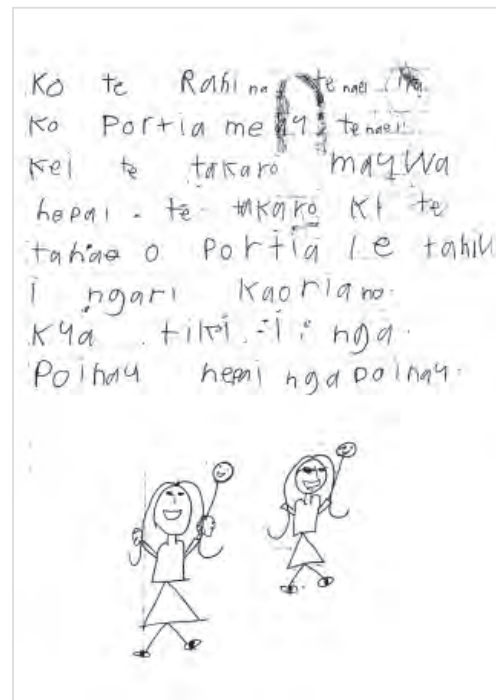 Ko te Rahi na tenaei
Ko Portia me tenaei
Kei te takaro maywa
hepai. te takaro ki te
tahae o Portia i e tahiu
i ngari kaoria no.
kya tiki i nga.
Poihau hepai nga poihau.